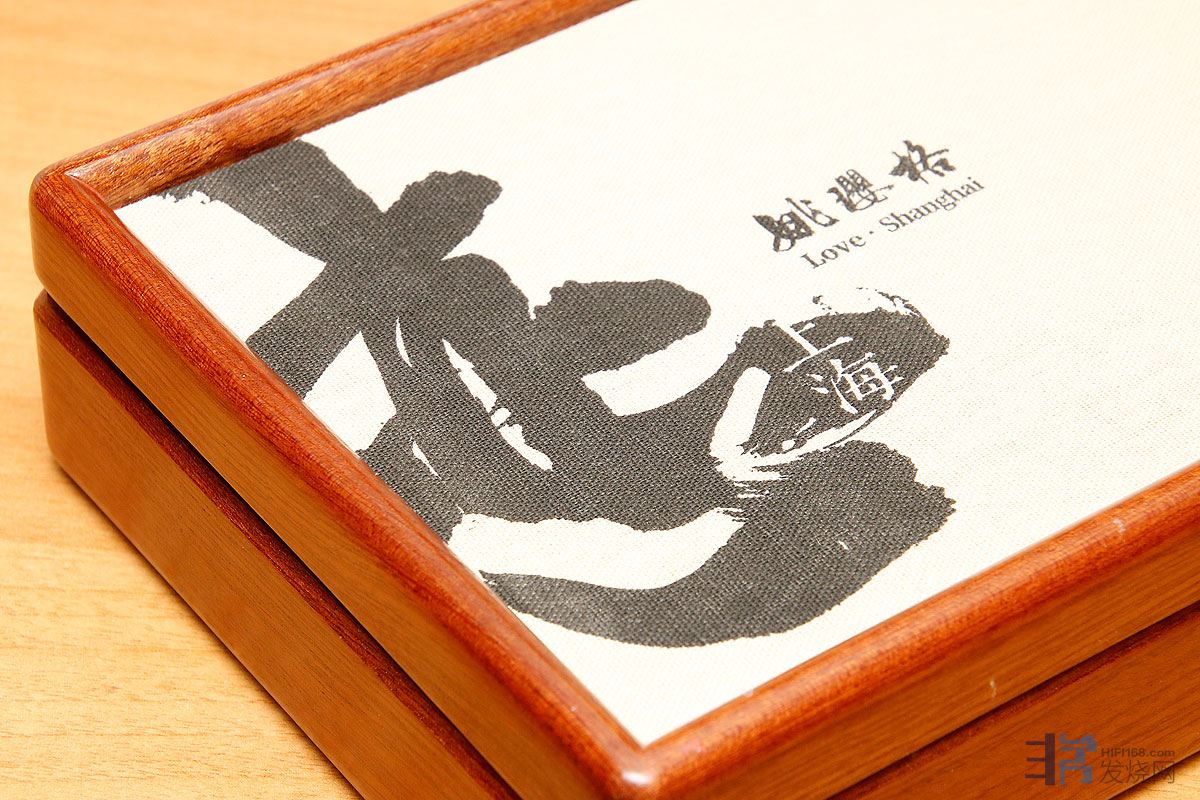 姚璎格
Love · Shanghai
上海
HIFI168.com
发烧网